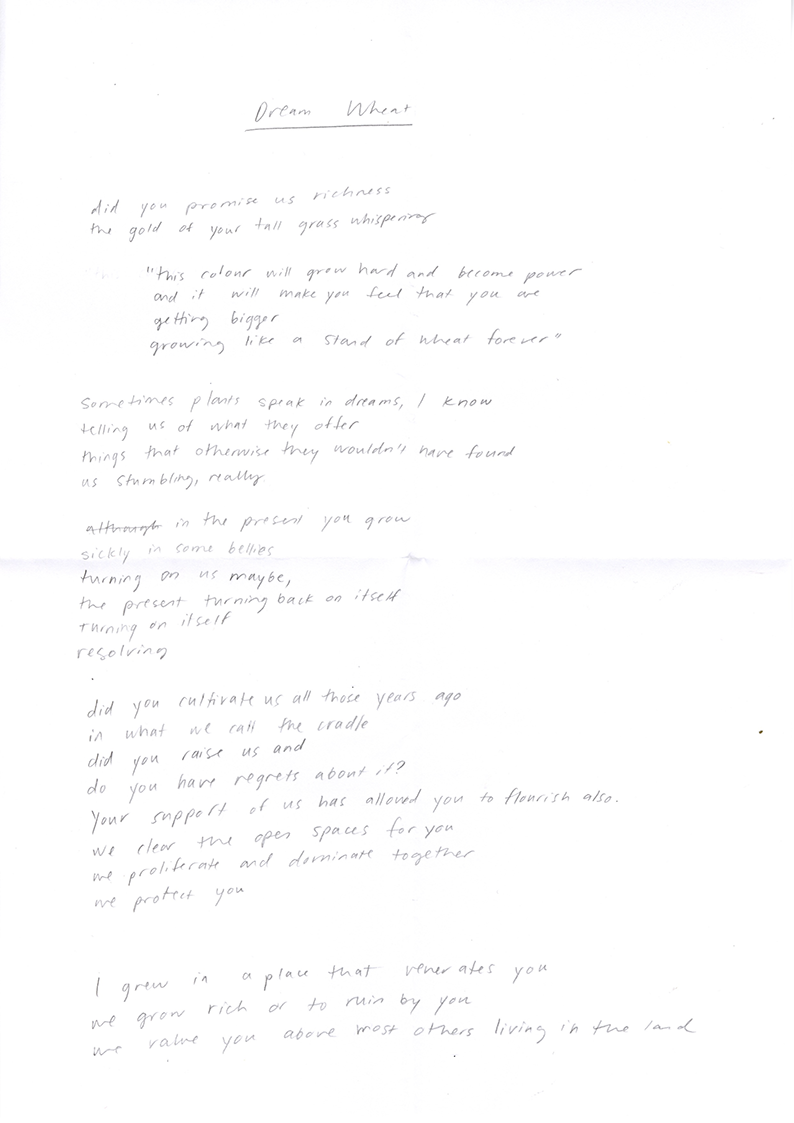 Dream Wheat
did you promise us richness
the gold of your tall grass whispering
"this colour will grow hard and become power
and it will make you feel that you are
getting bigger
growing like a stand of wheat forever"
Sometimes plants speak in dreams, I know
telling us of what they offer
things that otherwise they wouldn't have found
us stumbling, really
although in the present you grow
sickly in some bellies
turning on us maybe,
the present turning back on itself
turning on itself
resolving
did you cultivate us all those years ago
in what we call the cradle
did you raise us and
do you have regrets about it?
Your support of us has allowed you to flourish also.
we clear the open spaces for you
we proliferate and dominate together
we protect you
I grew in a place that venerates you
we grow rich or to ruin by you
we value you above most others living in the land